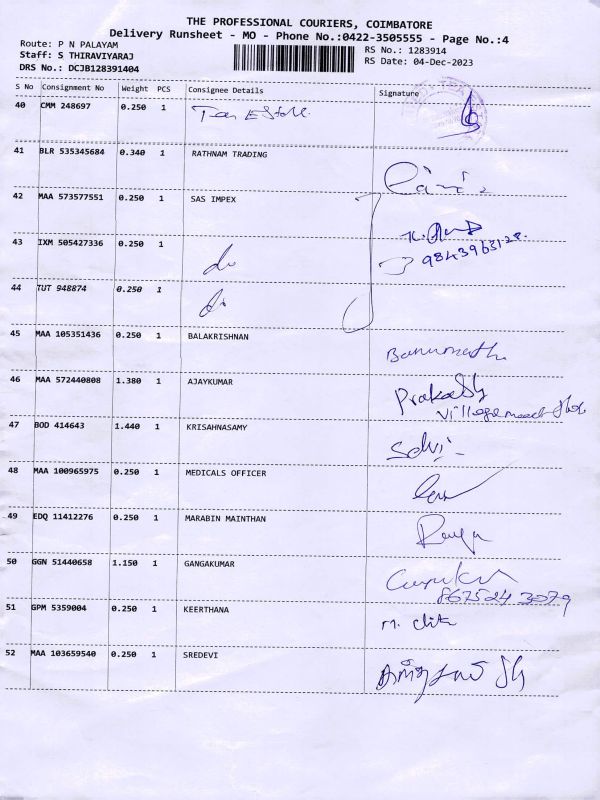 THE PROFESSIONAL COURIERS, COIMBATORE
Delivery Runsheet - MO - Phone No.:0422-3505555 - Page No.:4
Route: P N PALAYAM
Staff: S THIRAVIYARAJ
DRS No.: DCJB128391404
RS No.: 1283914
RS Date: 04-Dec-2023
S No Consignment No Weight PCS Consignee Details Signature
40 CMM 248697 0.250 1
41 BLR 535345684 0.340 1 RATHNAM TRADING
42 MAA 573577551 0.250 1 SAS IMPEX
43 IXM 505427336 0.250 1
44 TUT 948874 0.250 1
45 MAA 105351436 0.250 1 BALAKRISHNAN
46 MAA 572440808 1.380 1 AJAYKUMAR Prakash
47 BOD 414643 1.440 1 KRISAHNASAMY Selvi
48 MAA 100965975 0.250 1 MEDICALS OFFICER
49 EDQ 11412276 0.250 1 MARABIN MAINTHAN
50 GGN 51440658 1.150 1 GANGAKUMAR
8675243079
51 GPM 5359004 0.250 1 KEERTHANA
52 MAA 103659540 0.250 1 SREDEVI